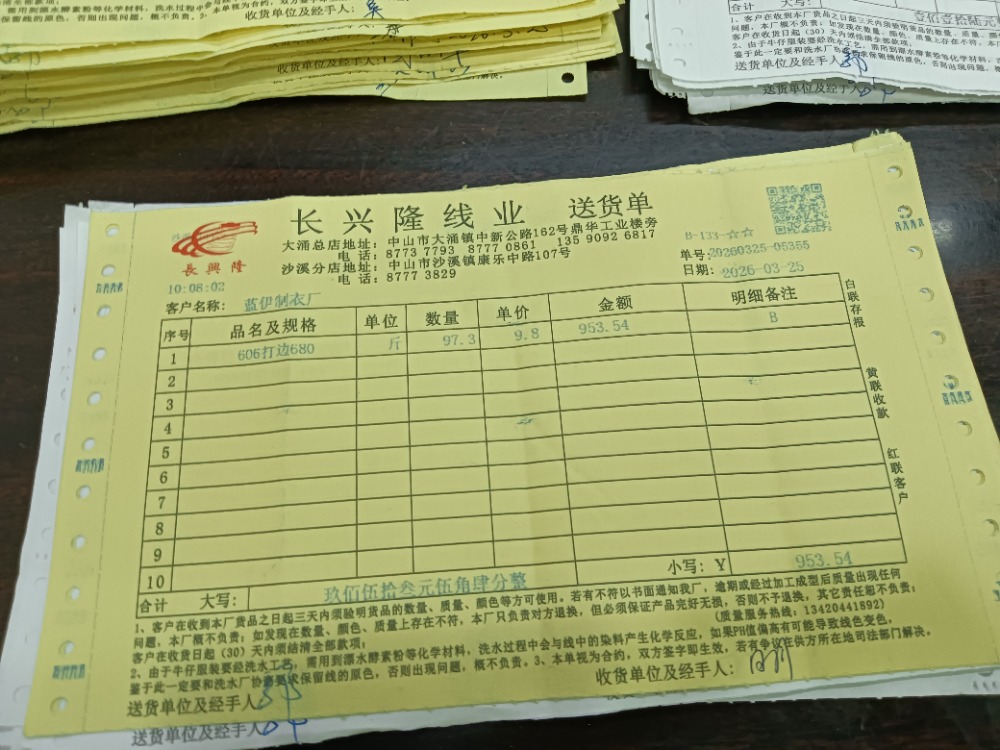 收货单位及经手人：
收货单位及经手人：
合计 大写：
壹佰壹拾陆元
送货单位及经手人
送货单位及经手人
長興隆
长兴隆线业 送货单
大涌总店地址：中山市大涌镇中新公路162号鼎华工业楼旁
电 话：8773 7793 8770 0861 135 9092 6817
沙溪分店地址：中山市沙溪镇康乐中路107号
电 话：8777 3829
B-133-☆☆
单号：20260325-05355
日期：2026-03-25
10:08:02
客户名称：蓝伊制衣厂
序号 品名及规格 单位 数量 单价 金额 明细备注
1 606打边680 斤 97.3 9.8 953.54 B
2
3
4
5
6
7
8
9
10
小写：￥ 953.54
合计 大写：玖佰伍拾叁元伍角肆分整
白联存报
黄联收款
红联客户
1、客户在收到本厂货品之日起三天内须验明货品的数量、质量、颜色等方可使用。若有不符以书面通知我厂，逾期或经过加工成型后质量出现任何
问题，本厂概不负责；如发现在数量、颜色、质量上存在不符，本厂只负责对方退换，但必须保证产品完好无损，否则不予退换，其它责任恕不负责；
客户在收货日起（30）天内须结清全部款项； （质量服务热线：13420441892）
2、由于牛仔服装要经洗水工艺，需用到漂水酵素粉等化学材料，洗水过程中会与线中的染料产生化学反应，如果PH值偏高有可能导致线色变色，
鉴于此一定要和洗水厂协商要求保留线的原色，否则出现问题，概不负责。3、本单视为合约，双方签字即生效，若有争议在供方所在地司法部门解决。
送货单位及经手人
收货单位及经手人：
送货单位及经手人